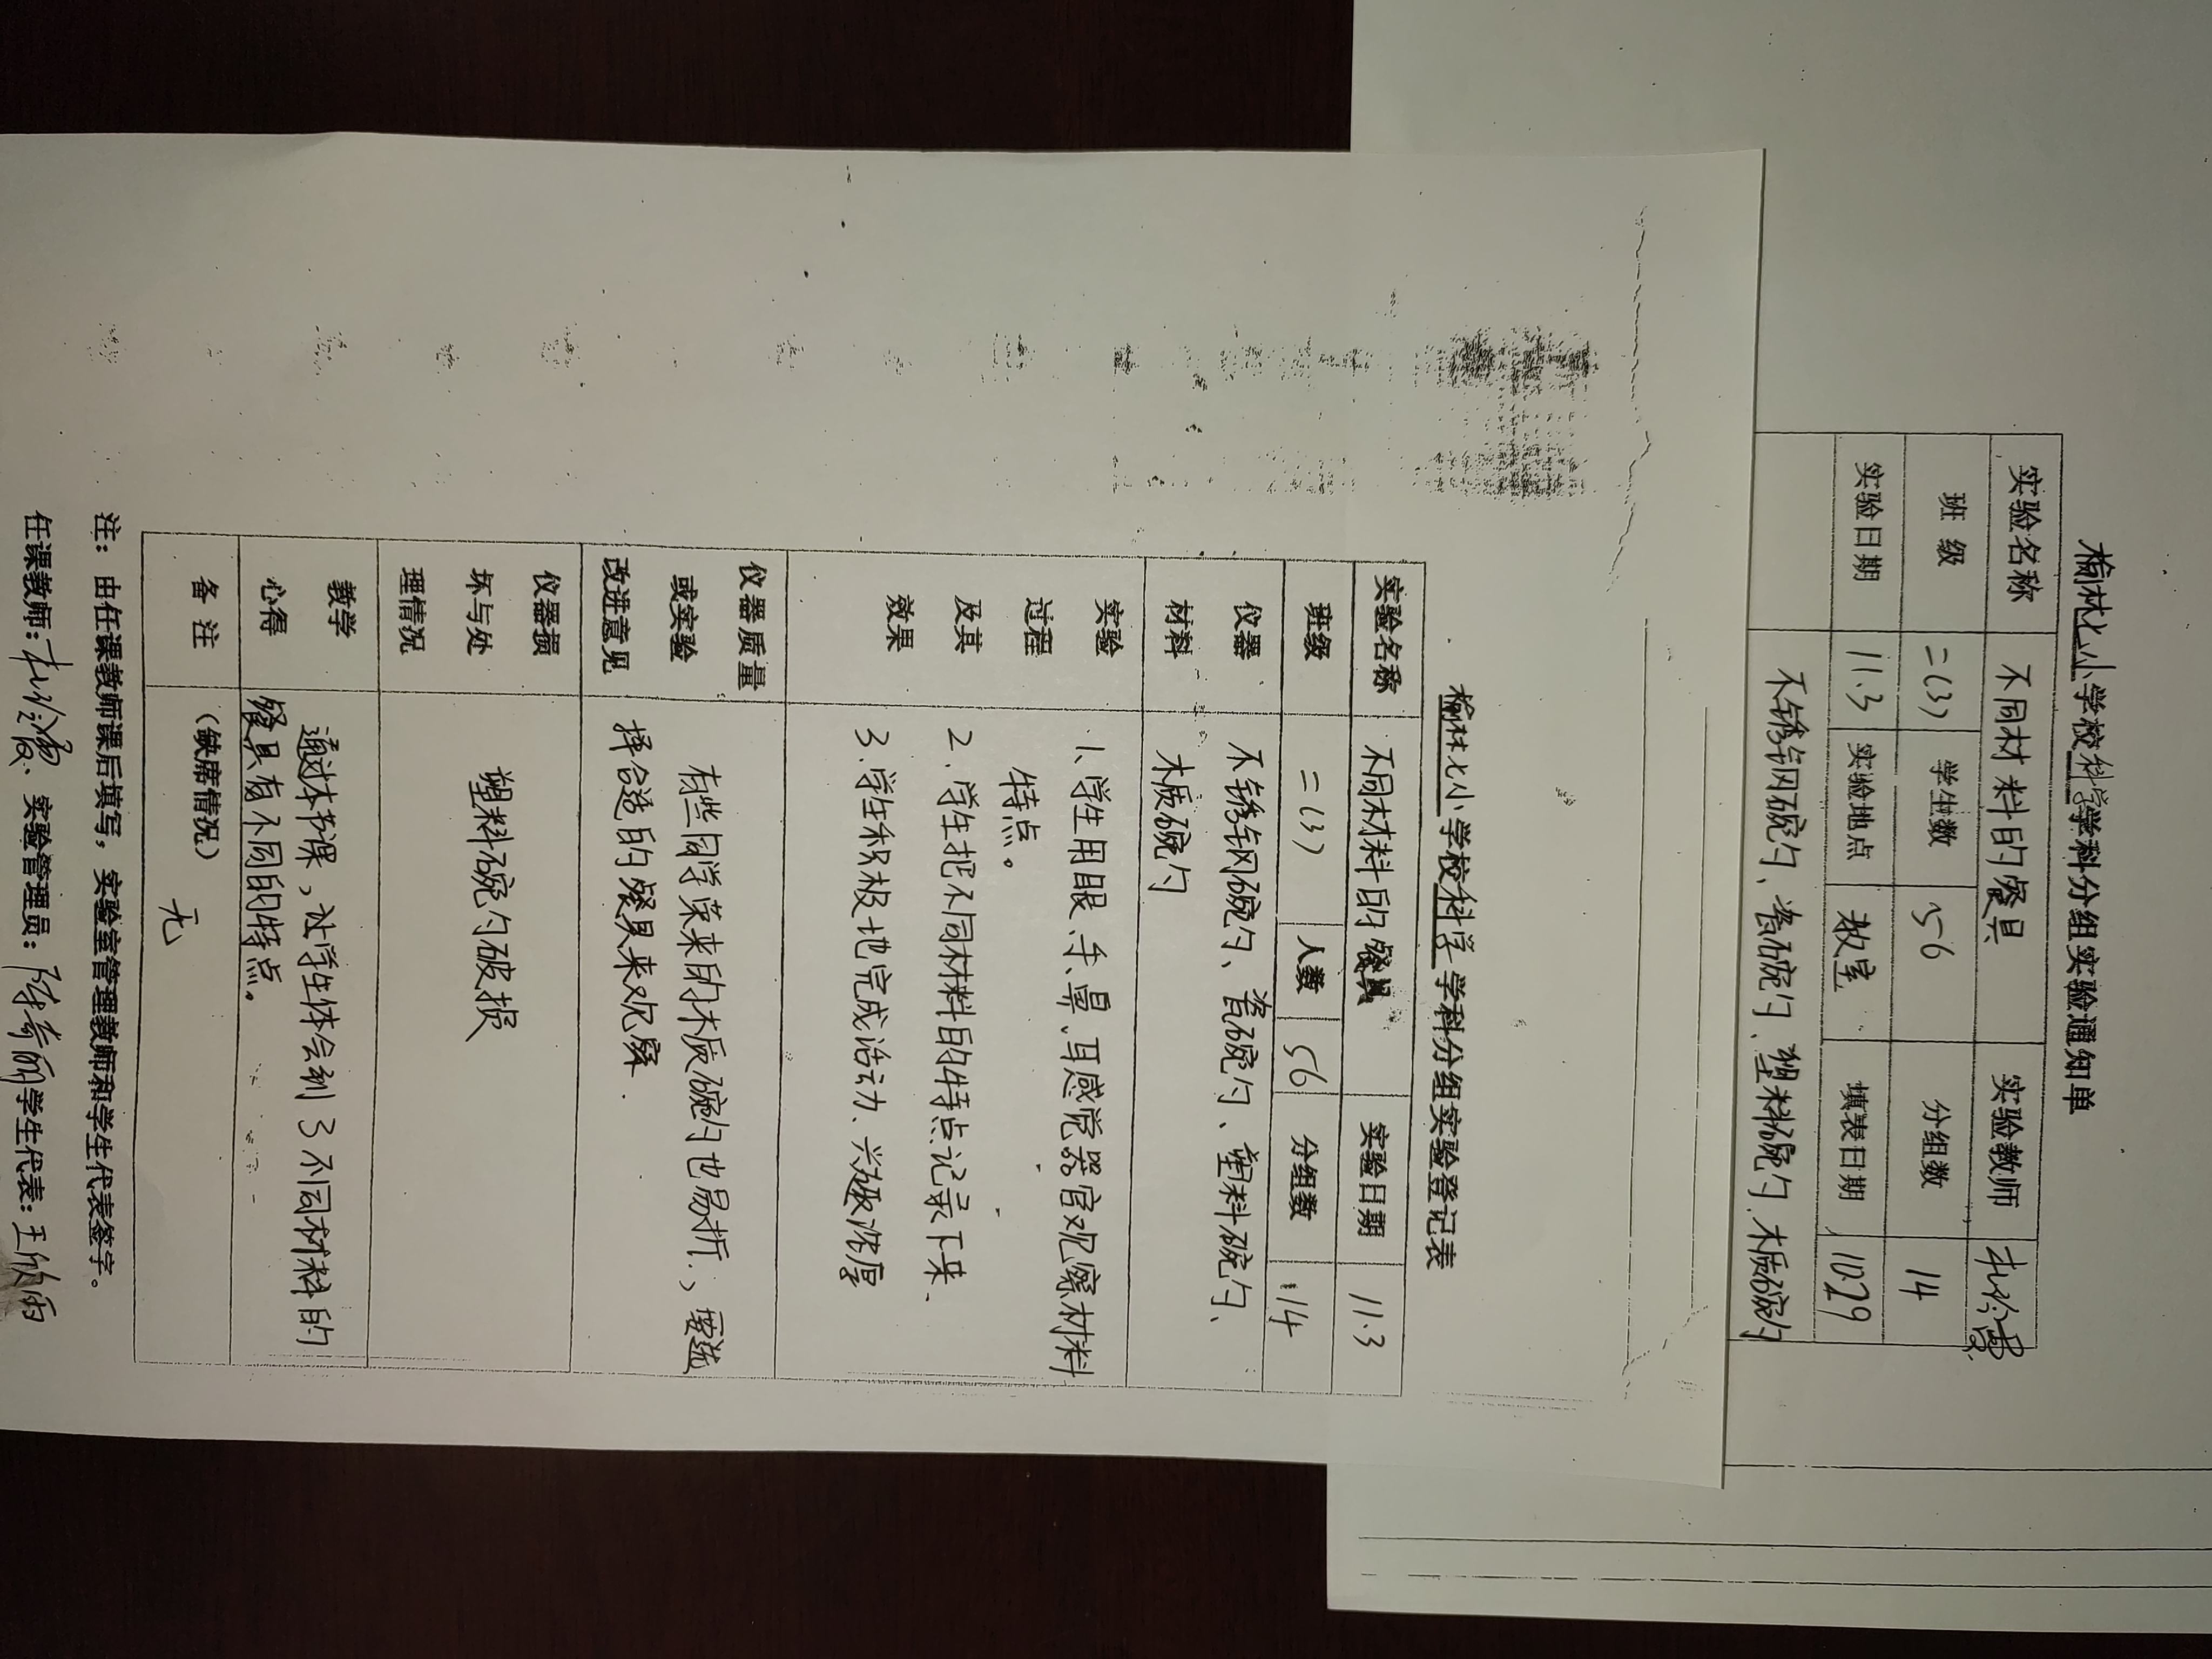 榆林七小学校科学学科分组实验通知单
实验名称 不同材料的餐具 实验教师
班级 二(3) 学生数 56 分组数 14
实验日期 11.3 实验地点 教室 填表日期 10.29
不锈钢碗勺、瓷碗勺、塑料碗勺、木质碗勺
榆林七小学校科学学科分组实验登记表
实验名称 不同材料的餐具 实验日期 11.3
班级 二(3) 人数 56 分组数 14
仪器 不锈钢碗勺、瓷碗勺、塑料碗勺、
材料 木质碗勺
实验 1、学生用眼、手、鼻、耳感觉器官观察材料
过程 特点。
及其 2、学生把不同材料的特点记录下来、
效果 3、学生积极地完成活动、兴趣浓厚
仪器质量
或实验 有些同学带来的木质碗勺也易折、，要选
改进意见 择合适的餐具来观察.
仪器损
坏与处 塑料碗勺破损
理情况
教学 通过本节课，让学生体会到了不同材料的
心得 餐具有不同的特点。
备注 （缺席情况） 无
注：由任课教师课后填写，实验室管理教师和学生代表签字。
任课教师： 、实验管理员： 学生代表：王欣雨